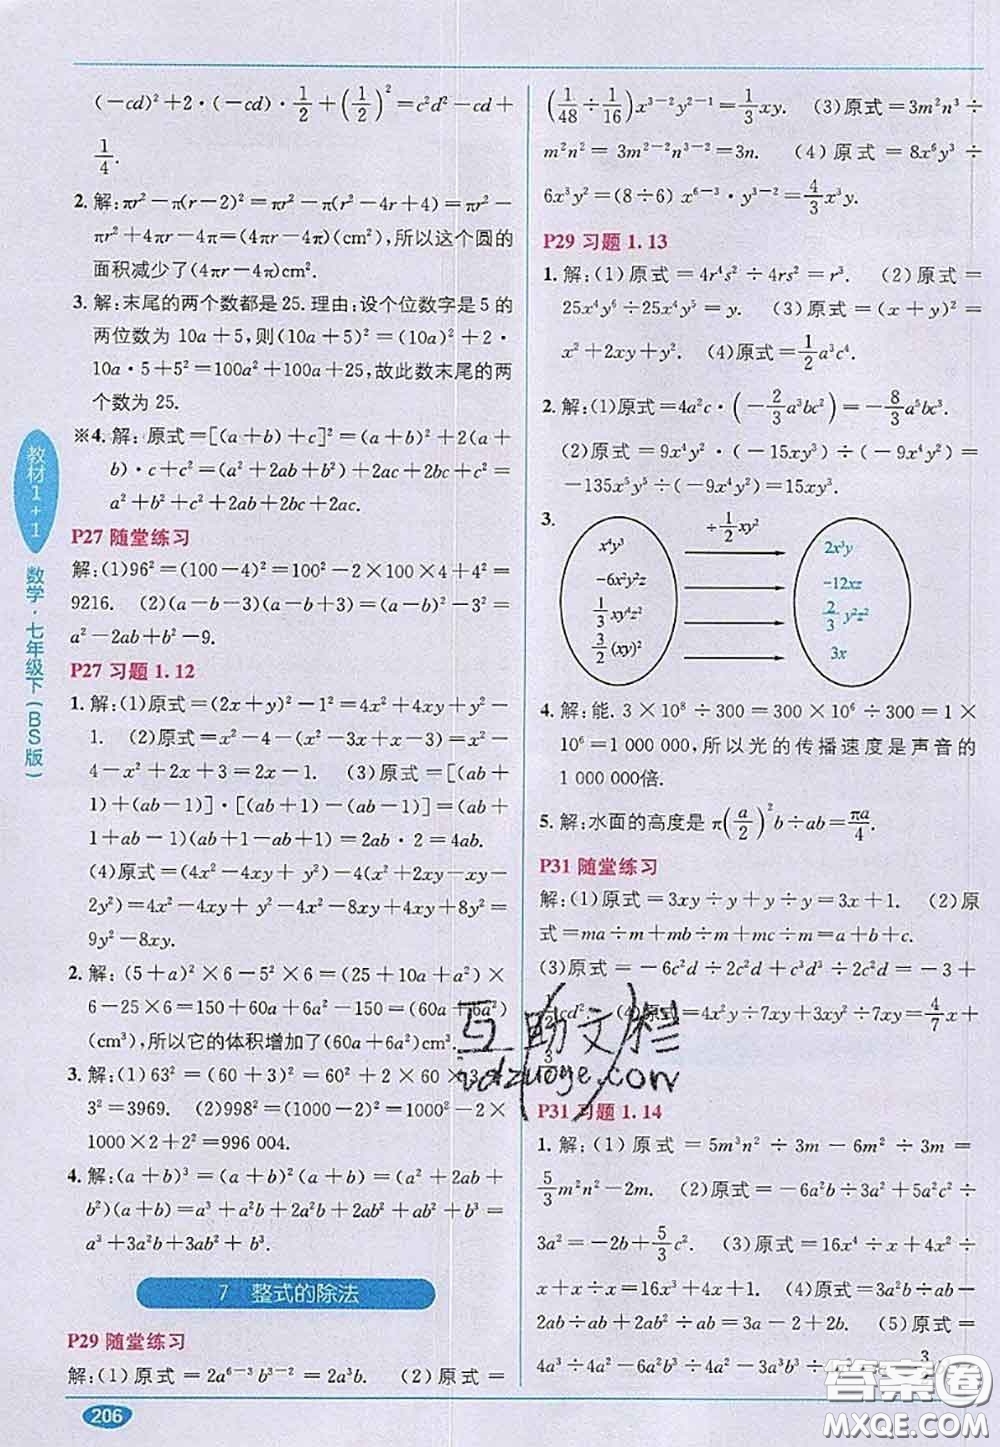 (-cd)²+2·(-cd)·1/2+(1/2)²=c²d²-cd+
1/4.
2. 解:πr²-π(r-2)²=πr²-π(r²-4r+4)=πr²-
πr²+4πr-4π=(4πr-4π)(cm²),所以这个圆的
面积减少了(4πr-4π)cm².
3. 解:末尾的两个数都是25.理由:设个位数字是5的
两位数为 10a+5,则(10a+5)²=(10a)²+2·
10a·5+5²=100a²+100a+25,故此数末尾的两
个数为25.
※4. 解:原式=[(a+b)+c]²=(a+b)²+2(a+b)
·c+c²=(a²+2ab+b²)+2ac+2bc+c²=
a²+b²+c²+2ab+2bc+2ac.
P27 随堂练习
解:(1)96²=(100-4)²=100²-2×100×4+4²=
9216. (2)(a-b-3)(a-b+3)=(a-b)²-3²=
a²-2ab+b²-9.
P27 习题 1.12
1. 解:(1)原式=(2x+y)²-1²=4x²+4xy+y²-
1. (2)原式=x²-4-(x²-3x+x-3)=x²
-4-x²+2x+3=2x-1. (3)原式=[(ab+
1)+(ab-1)]·[(ab+1)-(ab-1)]=(ab+
1+ab-1)(ab+1-ab+1)=2ab·2=4ab.
(4)原式=(4x²-4xy+y²)-4(x²+2xy-xy-
2y²)=4x²-4xy+y²-4x²-8xy+4xy+8y²=
9y²-8xy.
2. 解:(5+a)²×6-5²×6=(25+10a+a²)×
6-25×6=150+60a+6a²-150=(60a+6a²)
(cm³),所以它的体积增加了(60a+6a²)cm³.
3. 解:(1)63²=(60+3)²=60²+2×60×3+
3²=3969. (2)998²=(1000-2)²=1000²-2×
1000×2+2²=996 004.
4. 解:(a+b)³=(a+b)²(a+b)=(a²+2ab+
b²)(a+b)=a³+a²b+2a²b+2ab²+ab²+b³=
a³+3a²b+3ab²+b³.
7 整式的除法
P29 随堂练习
解:(1)原式=2a⁶⁻³b³⁻²=2a³b. (2)原式=
(1/48÷1/16)x³⁻²y²⁻¹=1/3xy. (3)原式=3m²n³÷
m²n²=3m²⁻²n³⁻²=3n. (4)原式=8x⁶y³÷
6x³y²=(8÷6)x⁶⁻³·y³⁻²=4/3x³y.
P29 习题 1.13
1. 解:(1)原式=4r⁴s²÷4rs²=r³. (2)原式=
25x⁴y⁶÷25x⁴y⁵=y. (3)原式=(x+y)²=
x²+2xy+y². (4)原式=1/2a³c⁴.
2. 解:(1)原式=4a²c·(-2/3a³bc²)=-8/3a⁵bc³.
(2)原式=9x⁴y²·(-15xy³)÷(-9x⁴y²)=
-135x⁵y⁵÷(-9x⁴y²)=15xy³.
3. ÷1/2xy²
x⁴y³ 2x³y
-6x²y²z -12xz
1/3xy⁴z² 2/3y²z²
3/2(xy)² 3x
4. 解:能.3×10⁸÷300=300×10⁶÷300=1×
10⁶=1 000 000,所以光的传播速度是声音的
1 000 000倍.
5. 解:水面的高度是π(a/2)²b÷ab=πa/4.
P31 随堂练习
解:(1)原式=3xy÷y+y÷y=3x+1. (2)原
式=ma÷m+mb÷m+mc÷m=a+b+c.
(3)原式=-6c²d÷2c²d+c³d³÷2c²d=-3+
cd². (4)原式=4x²y÷7xy+3xy²÷7xy=4/7x+
P31 习题 1.14
1. 解:(1)原式=5m³n²÷3m-6m²÷3m=
5/3m²n²-2m. (2)原式=-6a²b÷3a²+5a²c²÷
3a²=-2b+5/3c². (3)原式=16x⁴÷x+4x²÷
x+x÷x=16x³+4x+1. (4)原式=3a²b÷ab-
2ab÷ab+2ab²÷ab=3a-2+2b. (5)原式=
4a³÷4a-6a²b÷4a-2ab²÷4a=a²-3
教材1+1
数学·七年级下(BS版)
206
互助文栏
答案圈
MXQE.COM